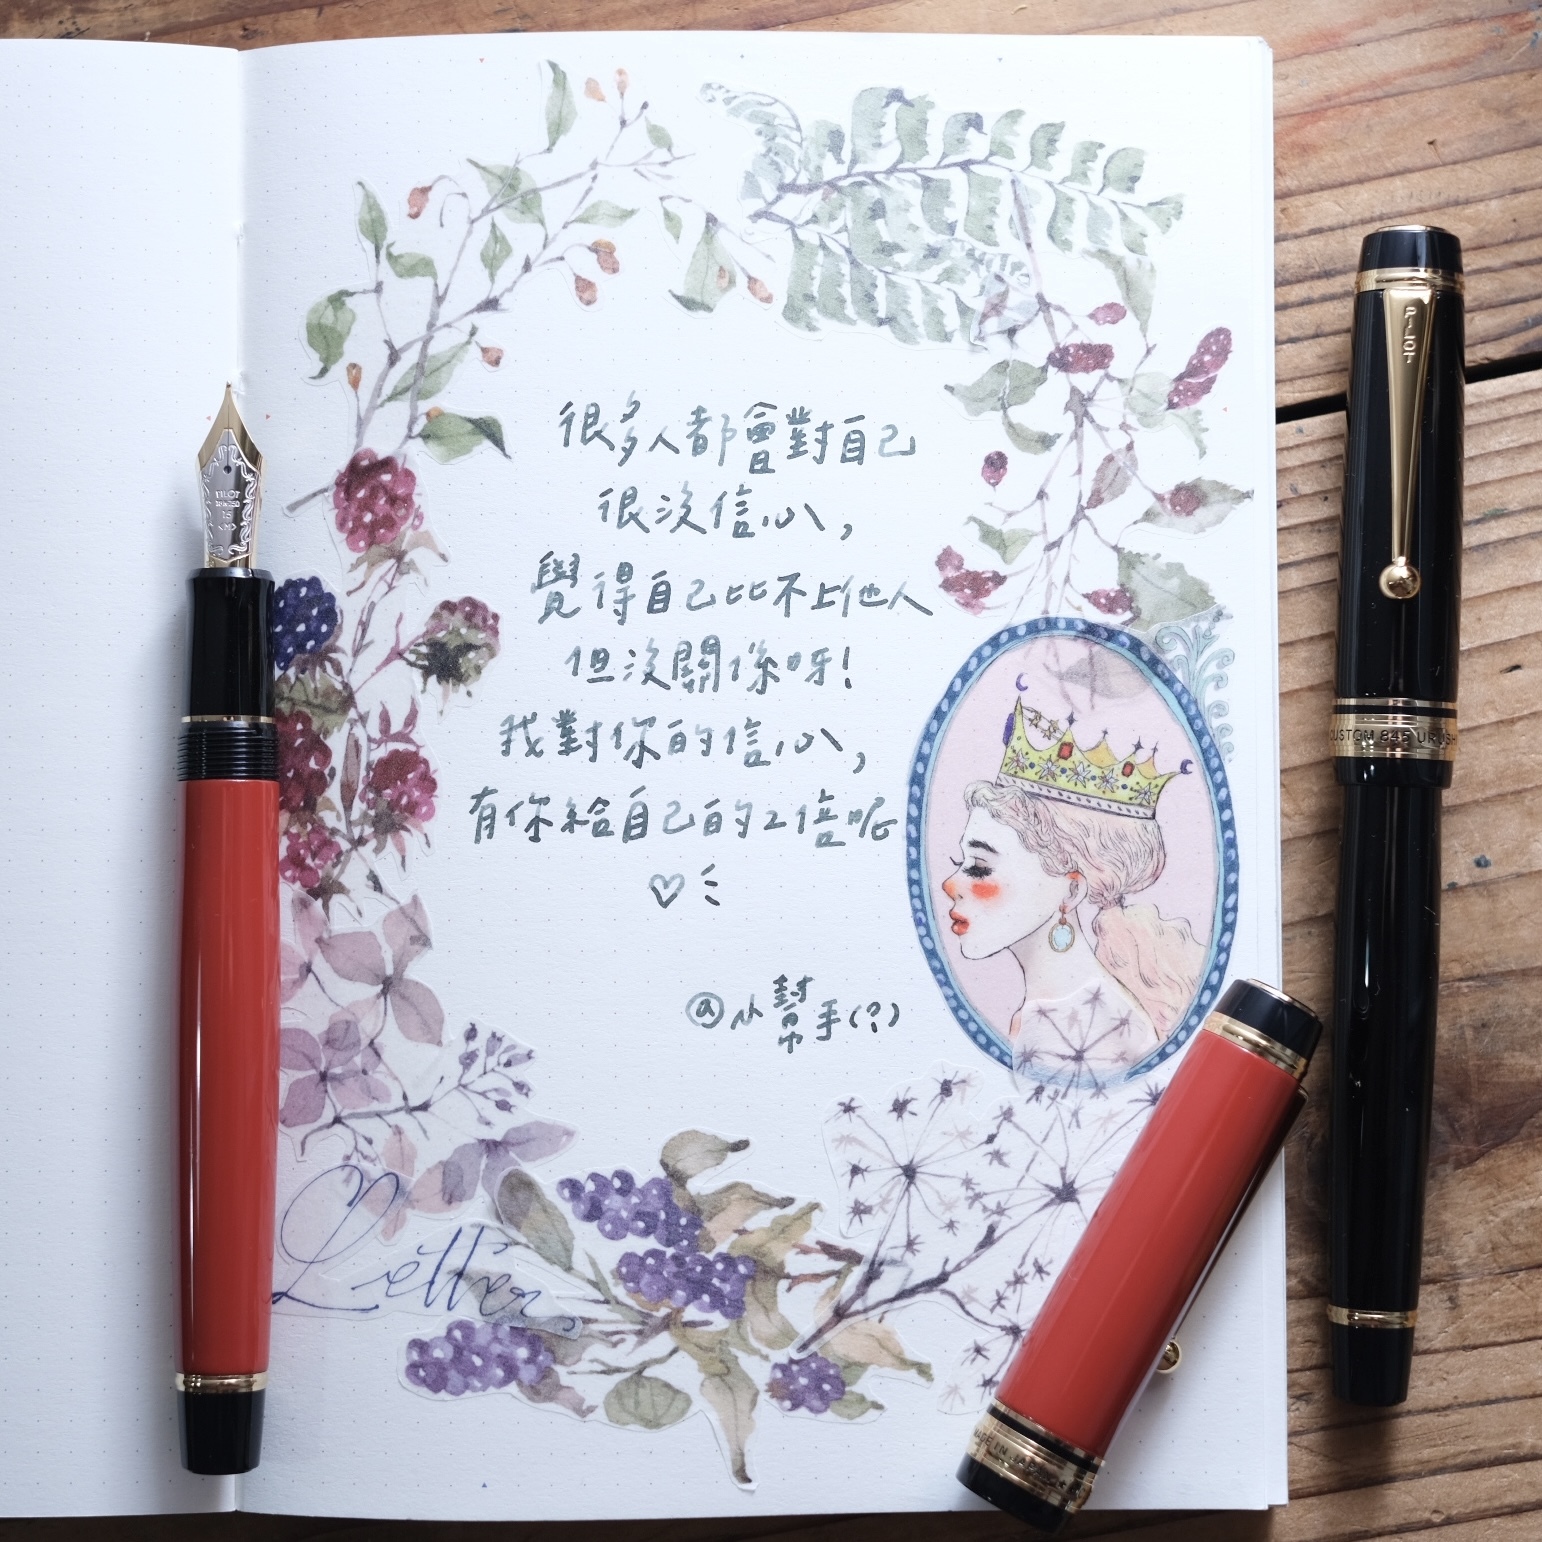 很多人都會對自己
很沒信心，
覺得自己比不上他人
但沒關係呀！
我對你的信心，
有你給自己的2倍呢
♡
@小幫手(?)
Letter
PILOT
CUSTOM 845 URUSHI
PILOT
MADE IN JAPAN